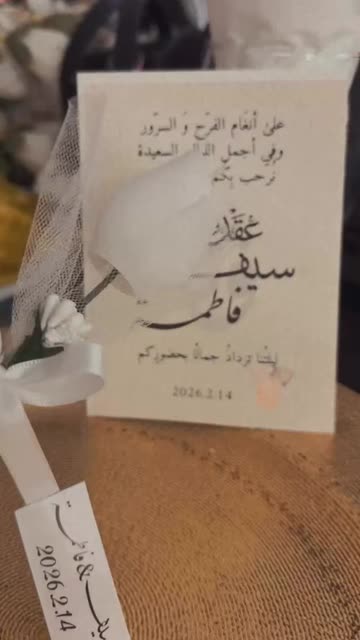 على أنغام الفرح و السرور
وفي أجمل الليالي السعيدة
نرحب بكم
عقد
سيف
فاطمة
ليلتنا تزداد جمالا بحضوركم
2026.2.14
سيف & فاطمة
2026.2.14